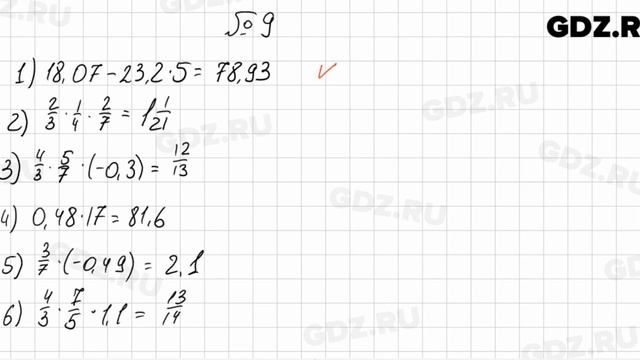 № 9
GDZ.R
1) 18,07 - 23,2 · 5 = 78,93 ✓
2) 2/3 · 1/4 · 2/7 = 1 1/21
3) 4/3 · 5/7 · (-0,3) = 12/13
4) 0,48 · 17 = 81,6
5) 3/7 · (-0,49) = 2,1
6) 4/3 · 7/5 · 1,1 = 13/14
GDZ.RU
GDZ.RU
GDZ.RU
GDZ.RU
GDZ.RU